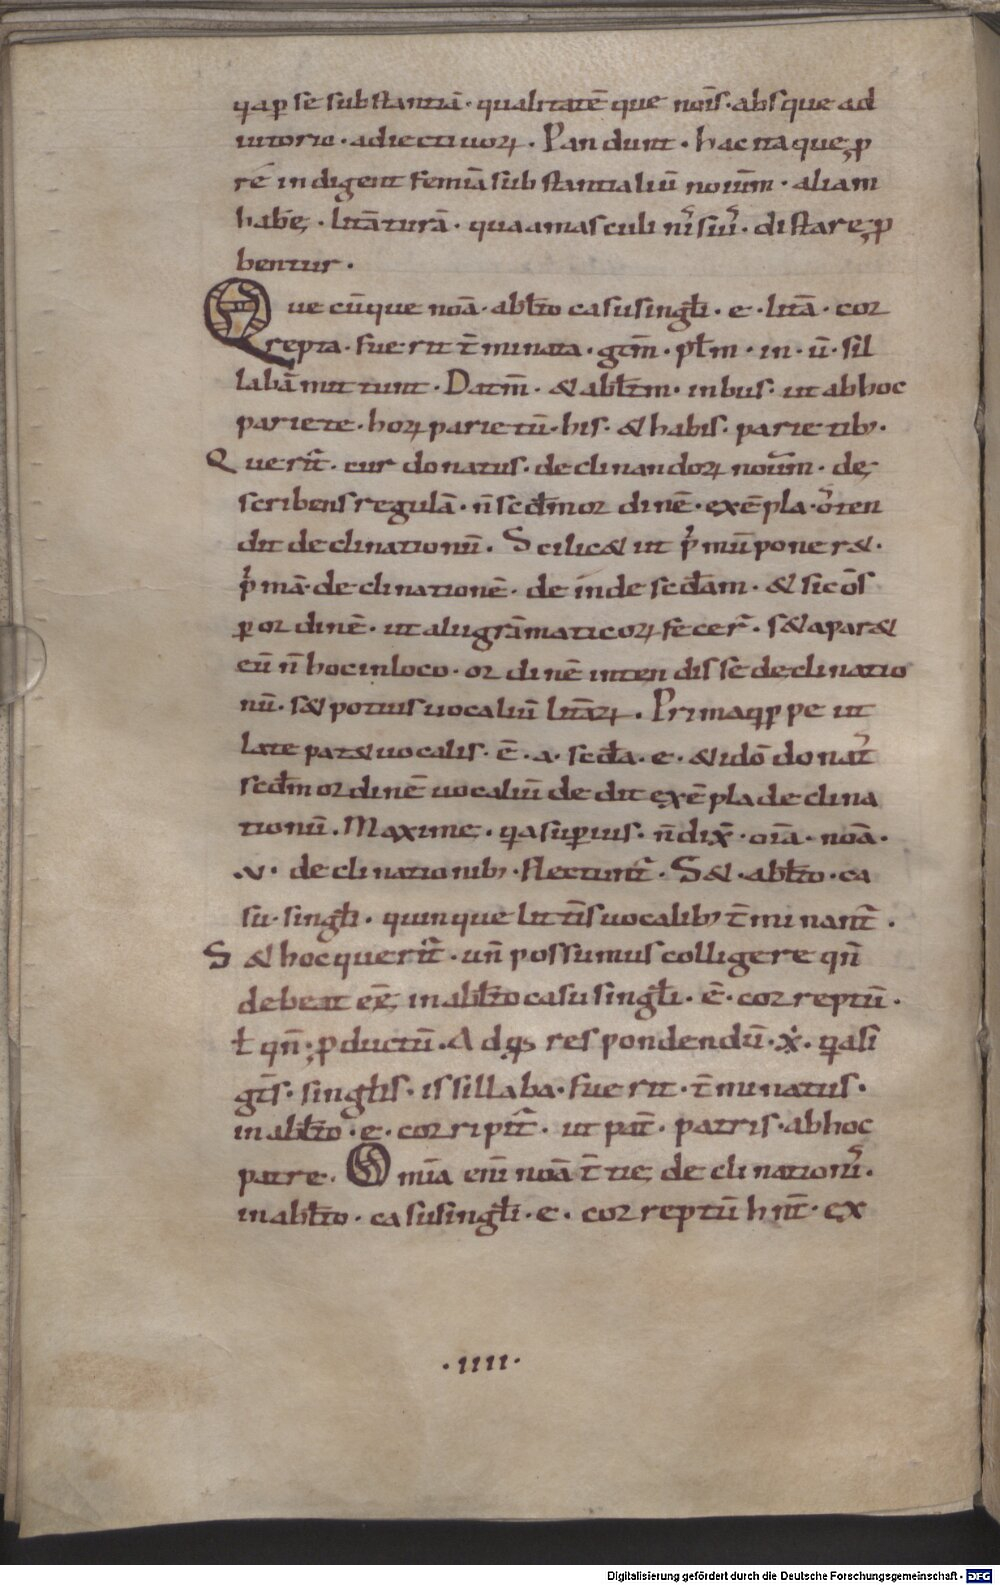 qa p se substantiā · qualitatē que noīs · absque ad
iutorio · adiectiuoꝝ · Pandunt · hac itaque ꝓp
rē indigent femīa substantialiū noīum · aliam
habēę · litāturā · qua a masculini nr̄is iur̄ · distare ꝓ
bentur ·
Que cūque noā · abłto casu singłi · e · litā · cor
repta · fuerit t̄minata · gtm̄ · płm · in · ū · sil
labā mittunt · Datm̄ · & abłtm · in bus · ut ab hoc
pariete · hoꝝ parietū · his · & habis · parietib; ·
Querit̄ · cur donatus · declinandoꝝ noīum · de
scribens regulā · n̄ scđm ordinē · exēpla · or̄ten
dit declinationū · Scilic& ut p̄mū poner& ·
p̄mā · declinationē · deinde scđam · & sic ōs
ꝑ ordinē · ut alii grāmaticoꝝ fecer̄ · s& apar&
eū n̄ hoc in loco · ordinē intendisse declinatio
nū · s& potius uocaliū litāꝝ · Prima qꝑpe ut
late pat& uocalis · ē · a · scđa · e · & idō donat̄
scđm ordinē uocaliū dedit exēpla declina
tionū · Maxime · qa supius · n̄ dix̄ · oīa · noā ·
· v · declinationib; · flectunt̄ · S& · abłto · ca
su · singłi · quinque litt̄is uocalib; t̄minant̄ ·
S& hoc querit̄ · un̄ possumus colligere qn̄
debeat eē; in abłto casu singłi · ē · correptū ·
ł qn̄ · ꝓductū · Ad qđ respondendū · x̄ · qa si
gt̄s · singłis · is sillaba · fuerit · t̄minatus ·
in abłto · e · corripit̄ · ut pat̄ · patris · ab hoc
patre · Omīa enī noā t̄tię declinationis̄ ·
in abłto · casu singłi · e · correptū hn̄t · ex
· IIII ·
Digitalisierung gefördert durch die Deutsche Forschungsgemeinschaft - DFG